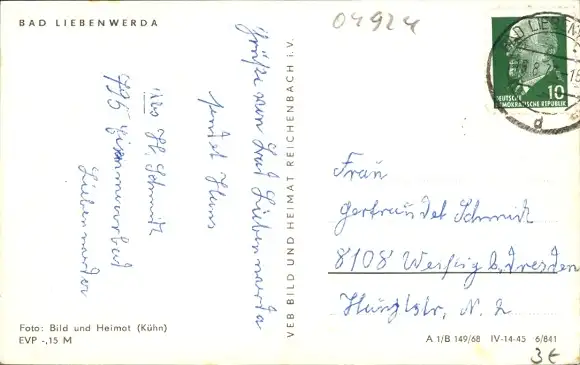 BAD LIEBENWERDA
04924
BAD LIEBENW
DEUTSCHE
DEMOKRATISCHE REPUBLIK
10
d
Grüße von Bad Liebenwerda
sendet Hans
H. Schmidt
795
Liebenwerda
VEB BILD UND HEIMAT REICHENBACH i. V.
Frau
Gertraudet Schmidt
8108 Weißig b. Dresden
N. 2
Foto: Bild und Heimat (Kühn)
EVP -,15 M
A 1/B 149/68 IV-14-45 6/841
3€